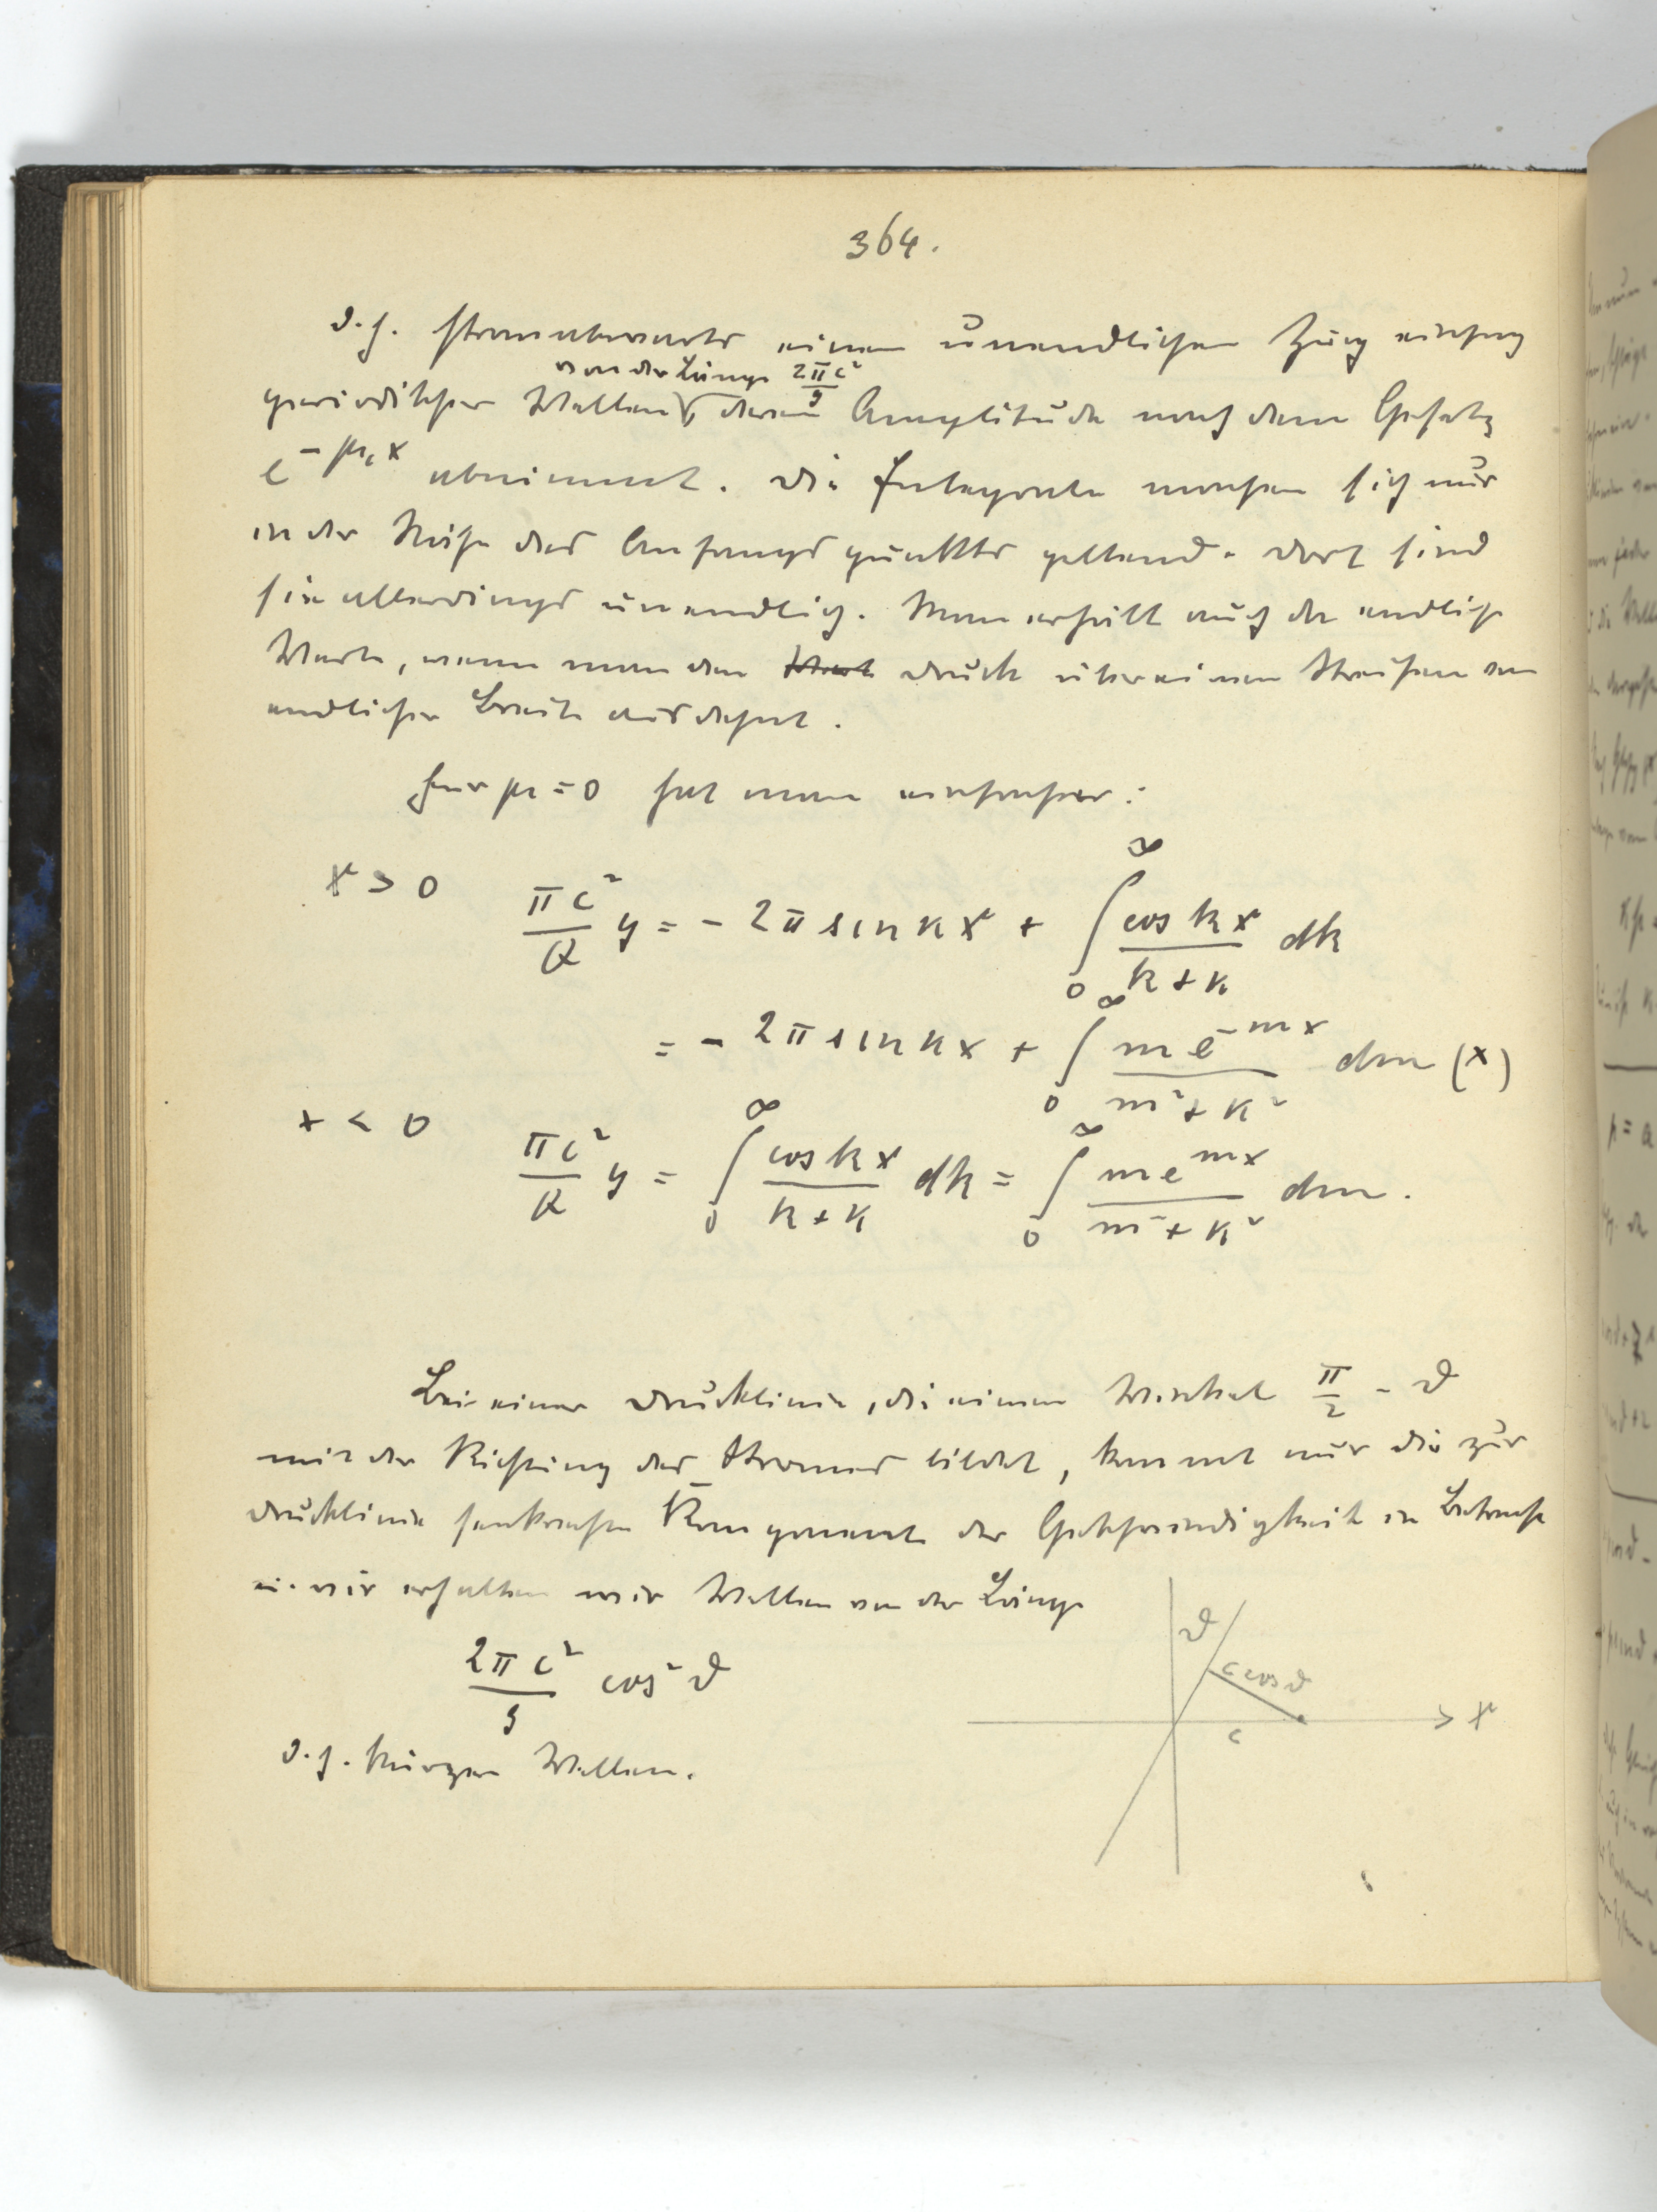 364.
d. h. stromabwärts einen unendlichen Zug einfach
von der Länge 2πc²/g
periodischer Wellen, deren Amplitude nach dem Gesetz
e^{-μ₁x} abnimmt. Die Integrale machen sich nur
in der Nähe des Anfangspunktes geltend. Dort sind
sie allerdings unendlich. Man erhält auch da endliche
Werte, wenn man den Druck über einen Streifen von
endlicher Breite ausdehnt.
Für μ = 0 hat man einfacher:
x > 0 πc²/Q y = - 2π sin κx + ∫₀^∞ cos kx/(k + κ) dk
= - 2π sin κx + ∫₀^∞ m e^{-mx}/(m² + κ²) dm (x)
x < 0 πc²/Q y = ∫₀^∞ cos kx/(k + κ) dk = ∫₀^∞ m e^{mx}/(m² + κ²) dm.
Bei einer Drucklinie, die einen Winkel π/2 - ϑ
mit der Richtung des Stromes bildet, kommt nur die zur
Drucklinie senkrechte Komponente der Geschwindigkeit in Betracht
u. wir erhalten wir Wellen von der Länge
2πc²/g cos² ϑ
d. h. kürzere Wellen.
ϑ
c cos ϑ
c
x